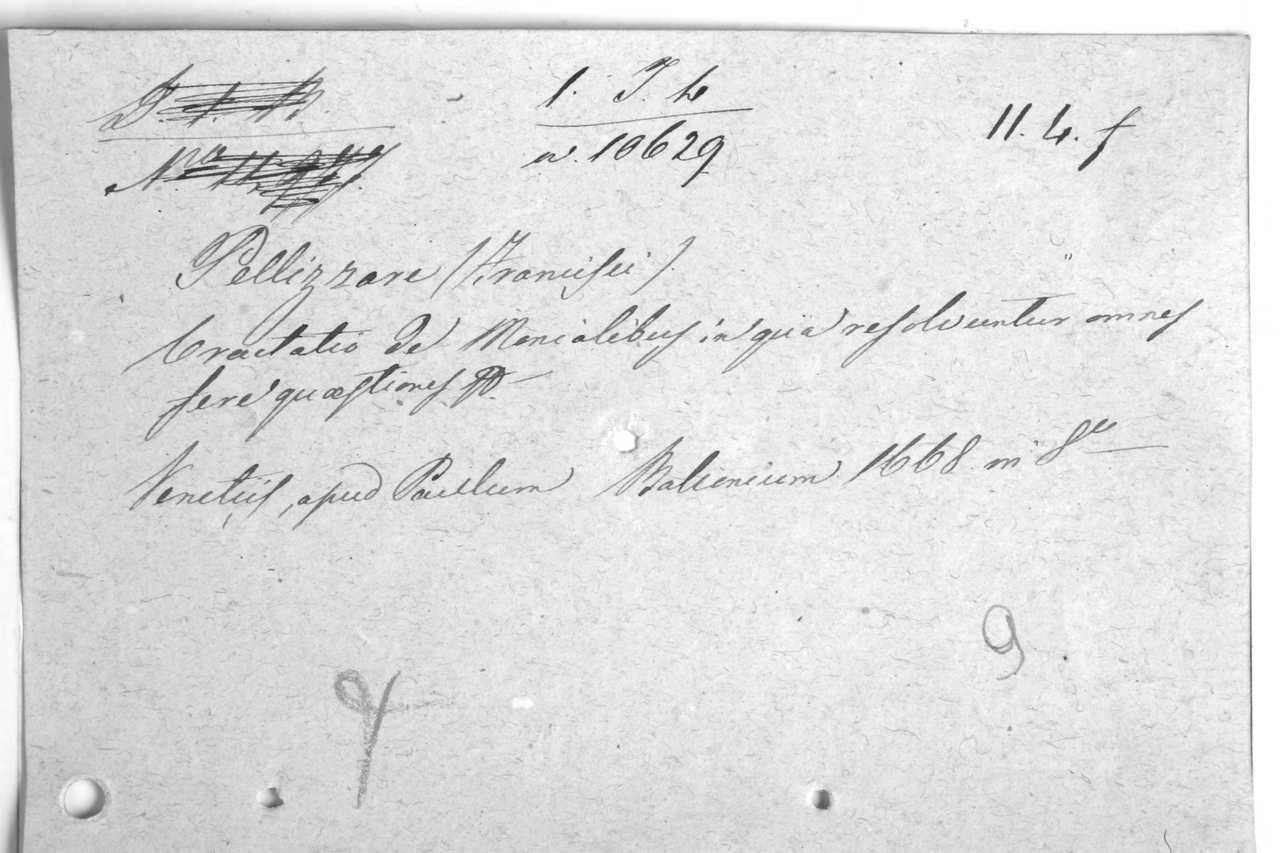 1. T. h 11. 4. f
n. 10629
Pellizzare (Francisci).
Tractatio de Monialibus in qua resolvuntur omnes
fere quæstiones
Venetijs, apud Paulum Balionium 1668 in 8º
9